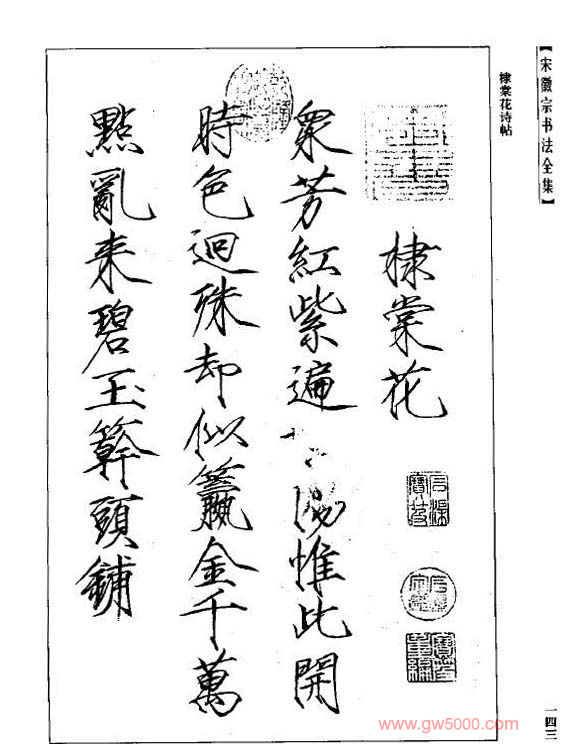 【宋徽宗书法全集】
棣棠花诗帖
棣棠花
石渠寶笈
寶笈重編
衆芳紅紫遍惟此開
時色迥殊却似籯金千萬
點亂来碧玉簳頭鋪
一四三
www.gw5000.com